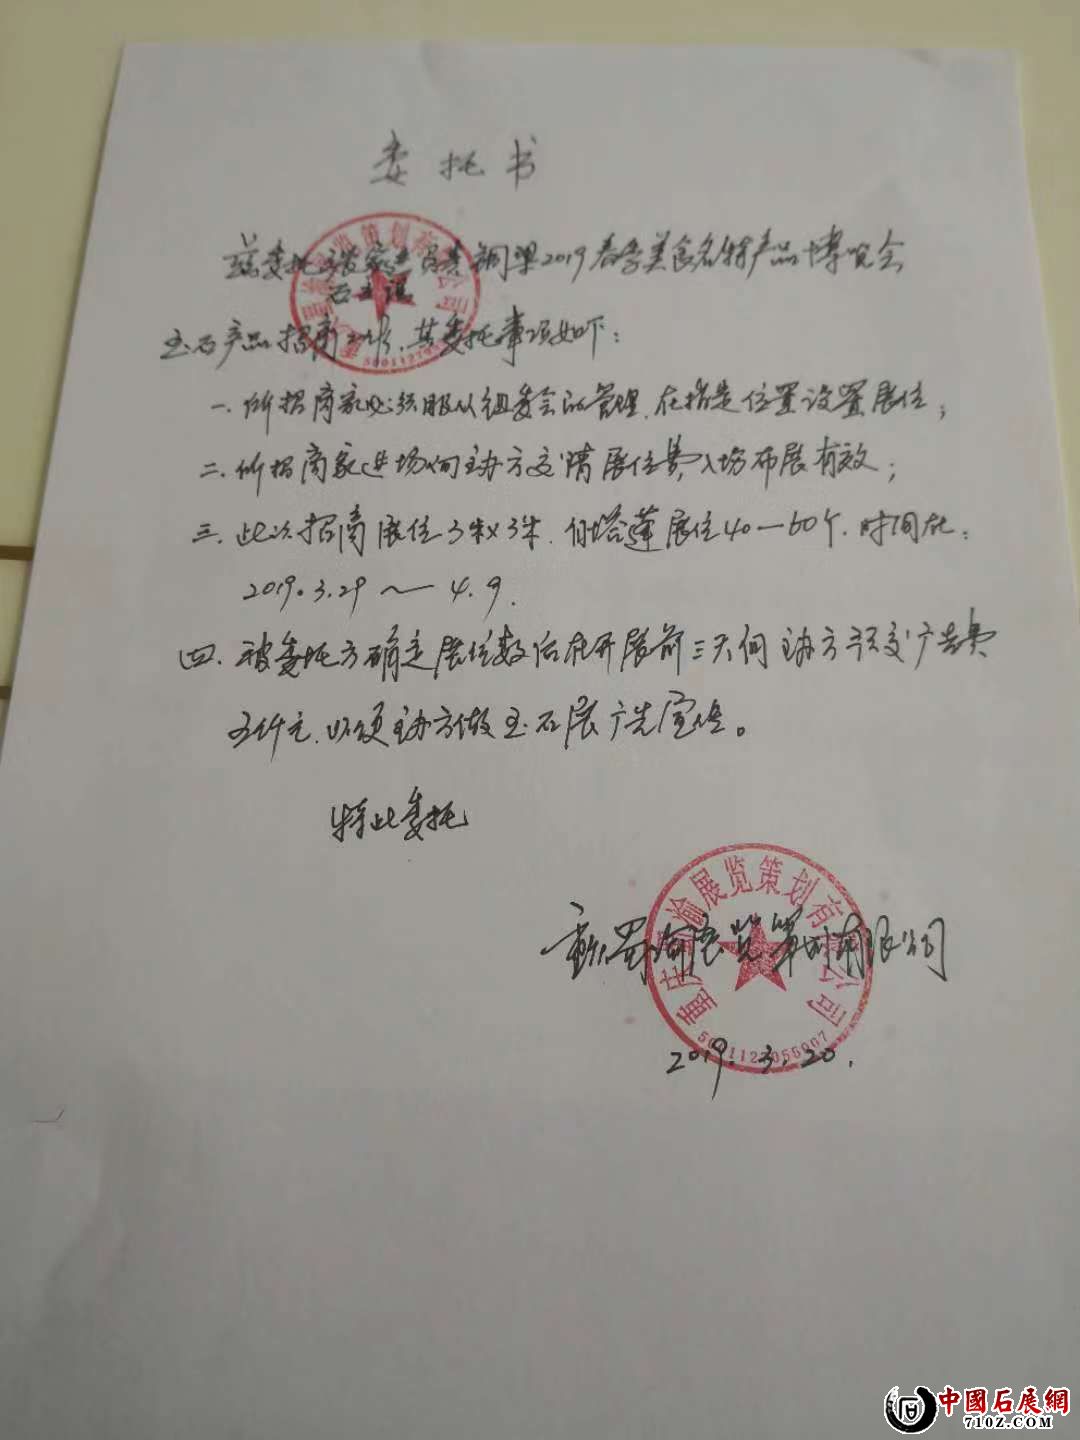 委托书
兹委托 负责铜梁2019春季美食名特产品博览会
玉石产品招商工作,其委托事项如下:
一、所招商家必须服从组委会的管理,在指定位置设置展位;
二、所招商家进场向主办方交清展位费,入场布展有效;
三、此次招商展位3米×3米, 展位40—60个,时间在:
2019.3.29~4.9.
四、被委托方确定展位数后在开展前三天向主办方预交广告费
五仟元,以便主办方做玉石展广告宣传。
特此委托
重庆蜀渝展览策划有限公司
重庆蜀渝展览策划有限公司
2019.3.20.
中國石展網
710Z.COM